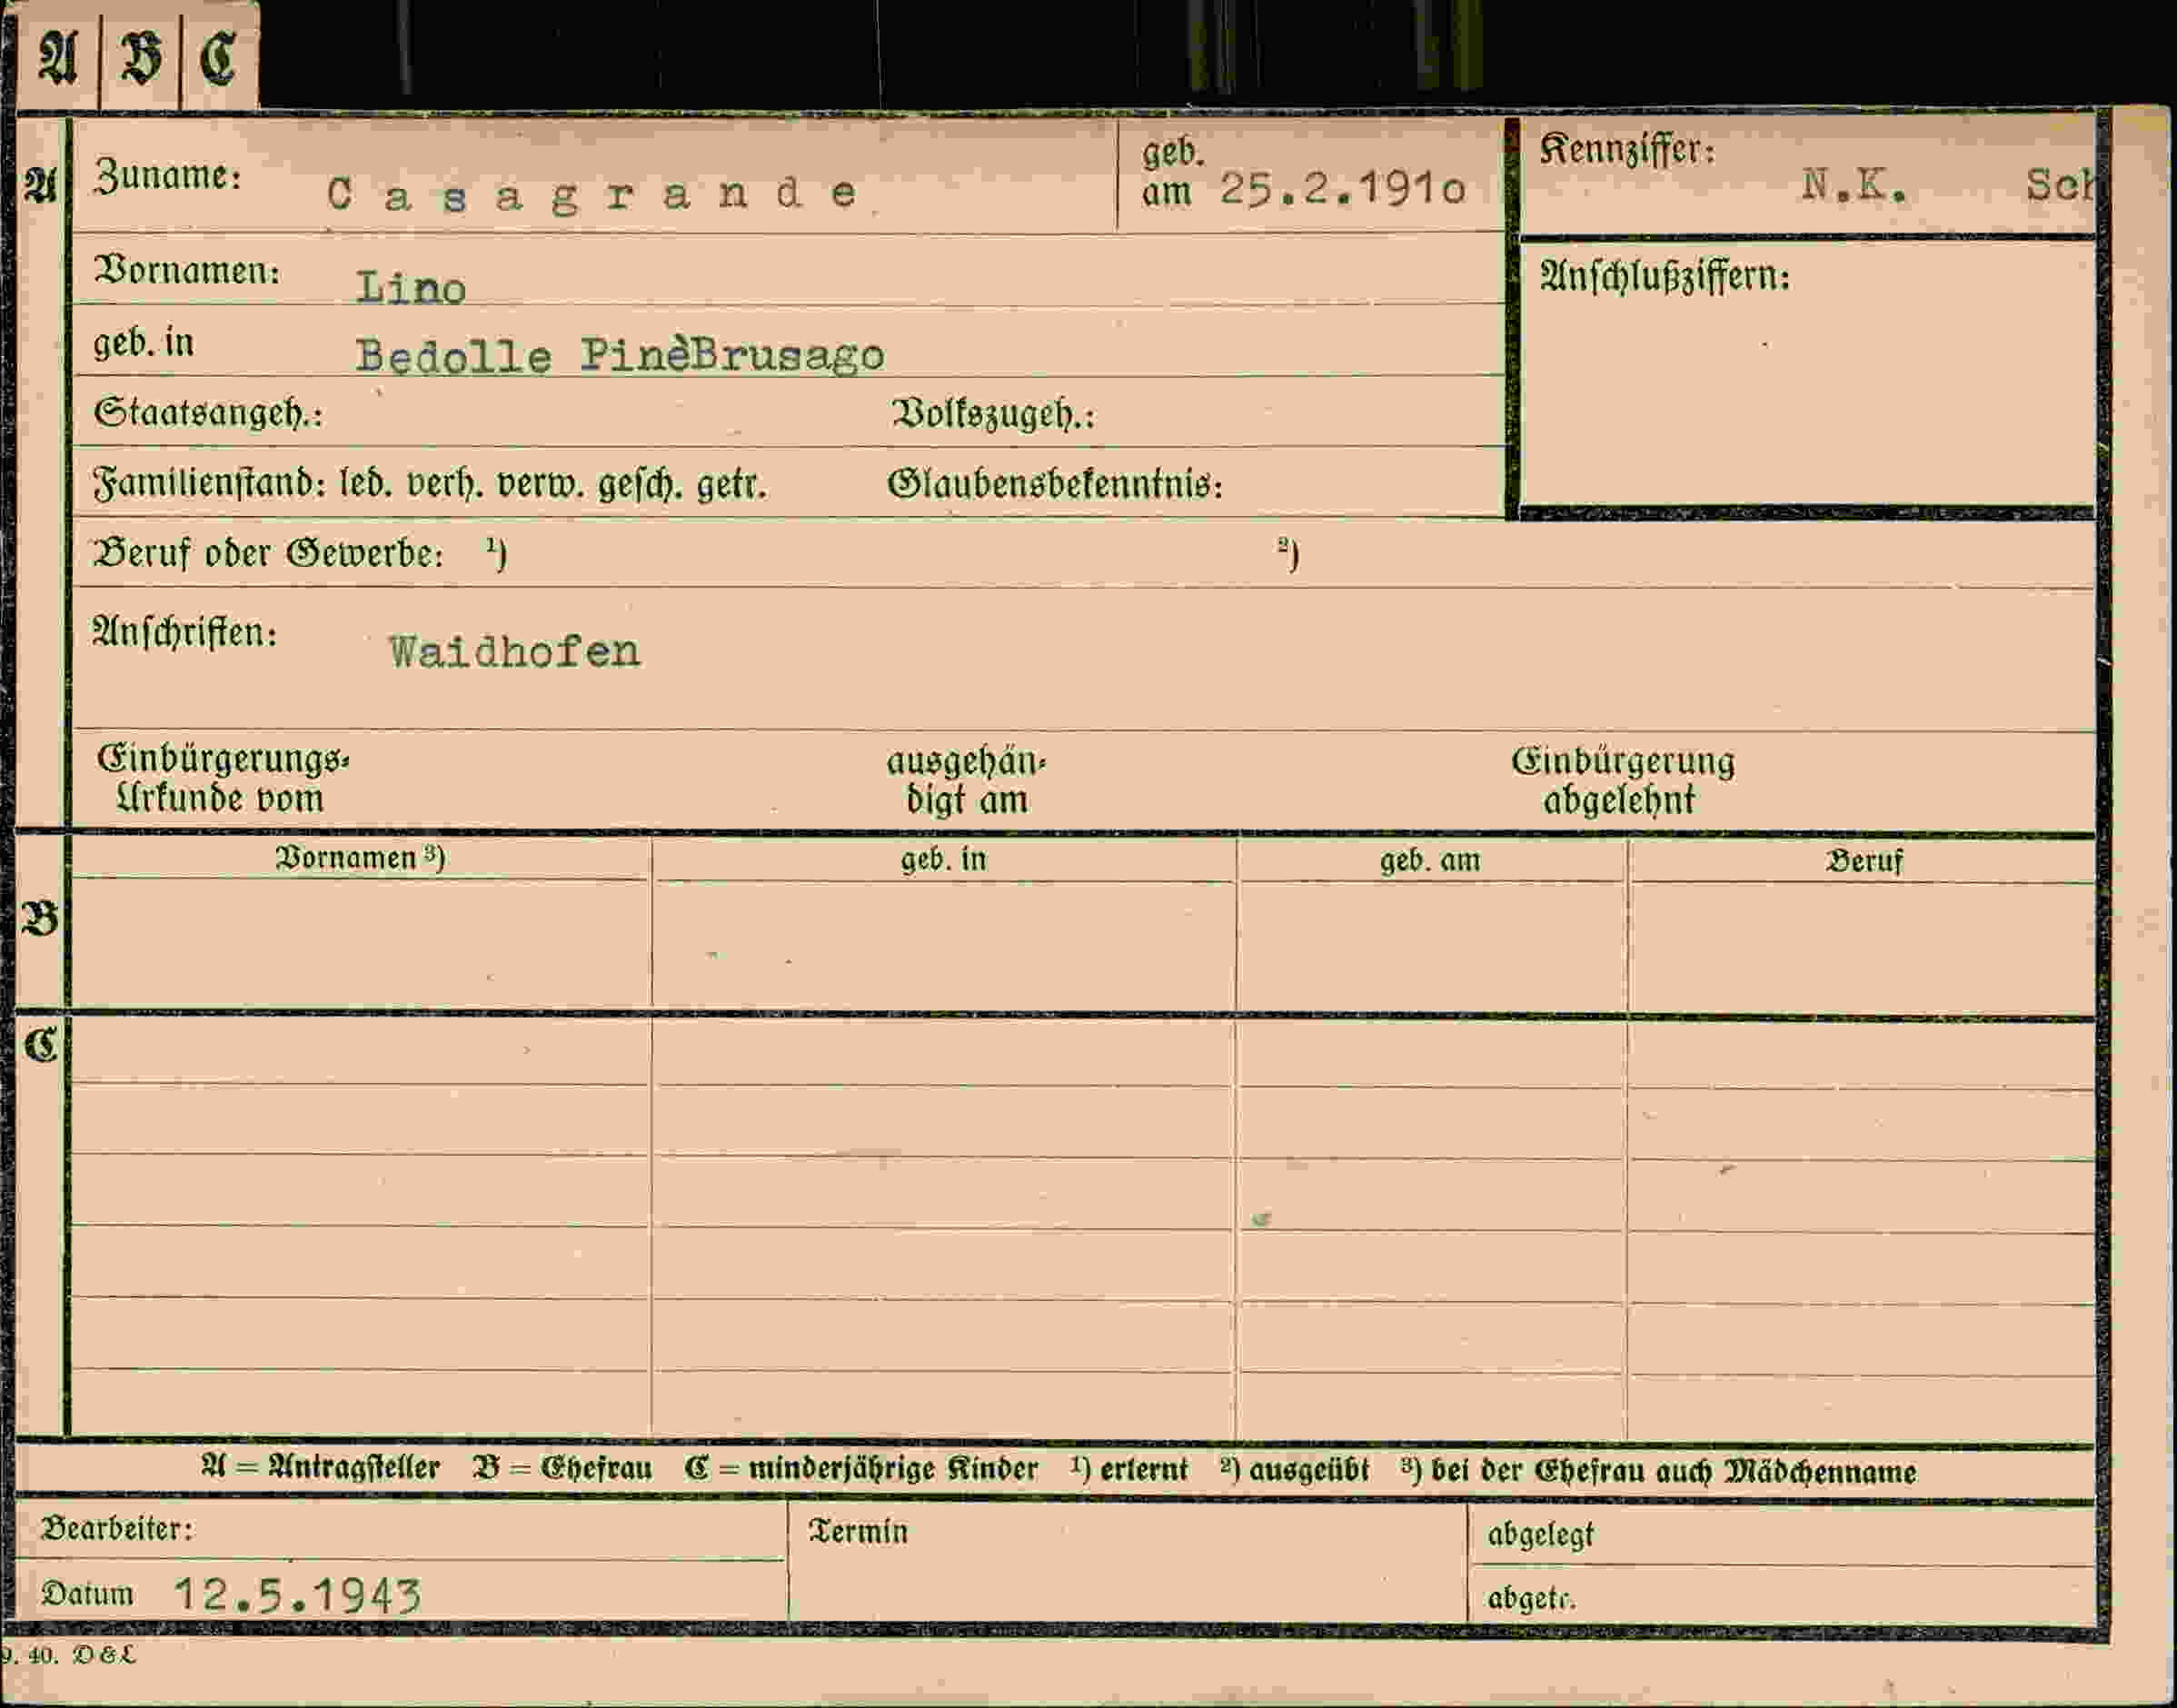 A B C
A
Zuname: Casagrande
geb. am 25.2.191o
Kennziffer: N.K. Sch
Vornamen: Lino
Anschlußziffern:
geb. in Bedolle PinèBrusago
Staatsangeh.: Volkszugeh.:
Familienstand: led. verh. verw. gesch. getr. Glaubensbekenntnis:
Beruf oder Gewerbe: ¹) ²)
Anschriften: Waidhofen
Einbürgerungs- ausgehän- Einbürgerung
Urkunde vom digt am abgelehnt
Vornamen ³) geb. in geb. am Beruf
B
C
A = Antragsteller B = Ehefrau C = minderjährige Kinder ¹) erlernt ²) ausgeübt ³) bei der Ehefrau auch Mädchenname
Bearbeiter: Termin abgelegt
Datum 12.5.1943 abgetr.
9. 40. D & L